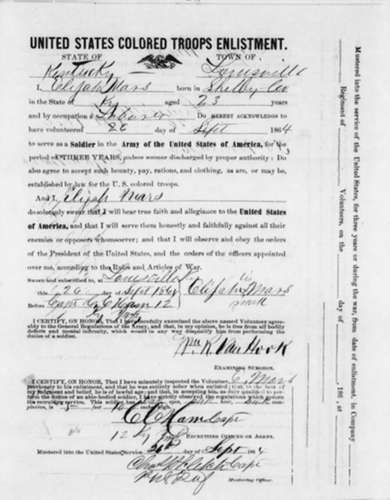 UNITED STATES COLORED TROOPS ENLISTMENT.
STATE OF TOWN OF
Kentucky Louisville
I, Elijah Mars born in Shelby Co
in the State of Ky aged 23 years
and by occupation a Laborer Do HEREBY ACKNOWLEDGE to
have volunteered 26 day of Sept 1864
to serve as a Soldier in the Army of the United States of America, for the
period of THREE YEARS, unless sooner discharged by proper authority: Do
also agree to accept such bounty, pay, rations, and clothing, as are, or may be,
established by law for the U. S. colored troops.
And I, Elijah Mars
do solemnly swear that I will bear true faith and allegiance to the United States
of America, and that I will serve them honestly and faithfully against all their
enemies or opposers whomsoever; and that I will observe and obey the orders
of the President of the United States, and the orders of the officers appointed
over me, according to the Rules and Articles of War.
Sworn and subscribed to, at Louisville
this 26 day of Sept 1864 Elijah Mars
Before Capt mark
I CERTIFY, ON HONOR, That I have carefully examined the above named Volunteer agree-
ably to the General Regulations of the Army, and that, in my opinion, he is free from all bodily
defects and mental infirmity, which would in any way disqualify him from performing the
duties of a soldier.
Wm. R. Van Hook
EXAMINING SURGEON.
I CERTIFY, ON HONOR, That I have minutely inspected the Volunteer E. Mars
previously to his enlistment, and that he was entirely sober when enlisted; that, to the best of
my judgment and belief, he is of lawful age; and that, in accepting him as duly qualified to per-
form the duties of an able-bodied soldier, I have strictly observed the regulations which govern
the recruiting service. This soldier has
Capt
12
RECRUITING OFFICER OR AGENT.
Mustered into the United States Service 26 day of Sept 1864
Capt
Mustered into the service of the United States, for three years or during the war, from date of enlistment, in Company
Regiment of Volunteers, on the day of 186 , at